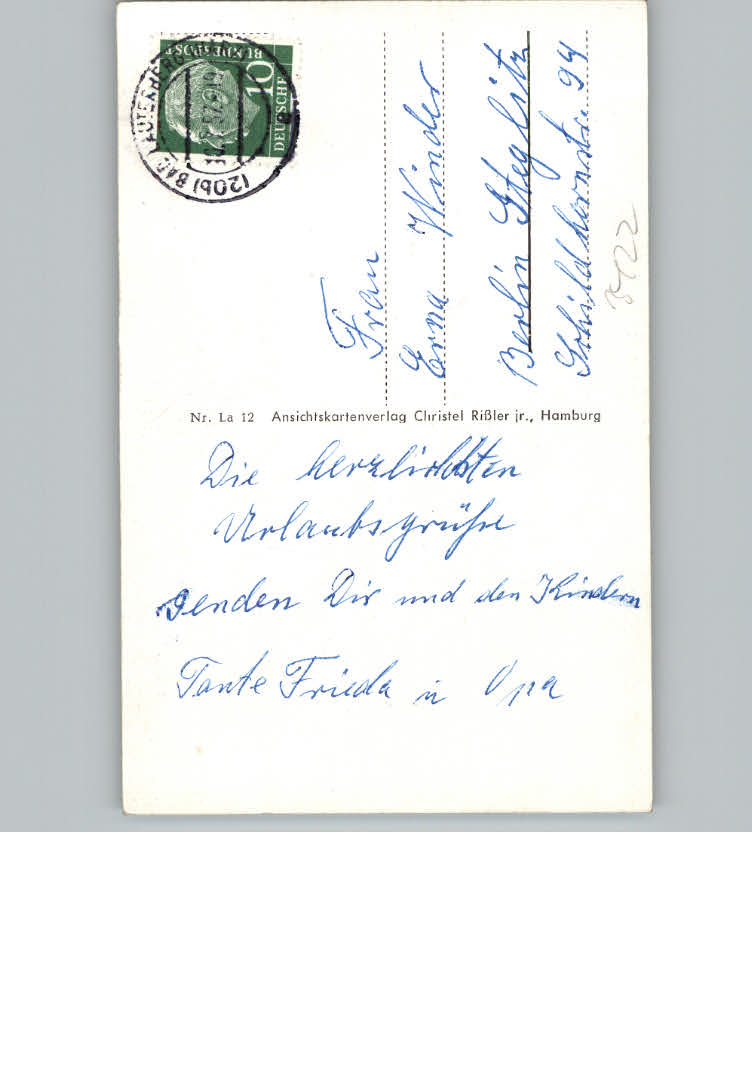 DEUTSCHE
BUNDESPOST
10
(20b) BAD LAUTERBERG
Frau
Erna Winder
Berlin Steglitz
Schildhornstr. 94
Nr. La 12 Ansichtskartenverlag Christel Rißler jr., Hamburg
Die herzlichsten
Urlaubsgrüße
senden Dir und den Kindern
Tante Frieda u Opa